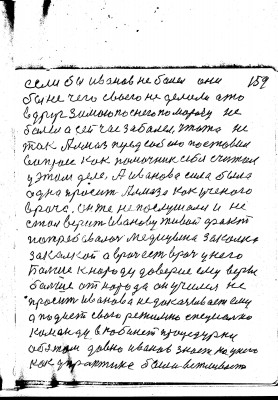 если бы Иванов не болел они 159
бы не чего своего не делали а то
вдруг зимою по снегу по морозу не
болел а сейчас заболел, что то не
так Алмаз пред собою поставил
вопрос как помочник себя считал
у этом деле, А Иванова сила была
одна просит Алмаз как ученого
врача, он же не послушал и не
стал верит Иванову живой факт
потребовалос медицина законно
закалкой а врачеств врач у него
больше к народу доверие ему веры
больше от народа он учился не
просит Иванова не доказивает ему
а подает свого режимно специално
команду в кабинет процедурки
об этом давно Иванов знает на него
как у практике были вспишкою